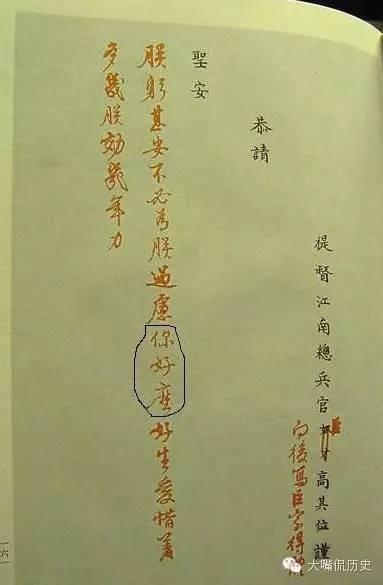 提督江南總兵官奴才高其位謹
臣
向後寫臣字得
恭請
聖安
朕躬甚安不必為朕過慮你好麽好生愛惜着
多與朕効幾年力
一六
大嘴侃历史